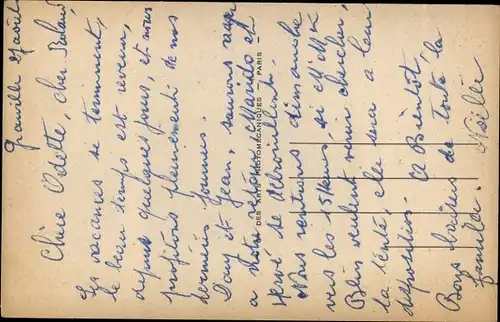 Granville 27 août
Chère Odette, cher Roland,
Les vacances se terminent,
le beau temps est revenu
depuis quelques jours, et nous
profitons pleinement de nos
dernières journées.
Dany et Jean, saurons
à notre retour. Marido et
Hervé se
Nous rentrons dimanche
vers les 15 heures, si M. Mme
Blin veulent venir chercher
la tente, elle sera à leur
disposition. A Bientôt.
Bons baisers de toute la
famille.
DES ARTS PHOTOMÉCANIQUES — PARIS